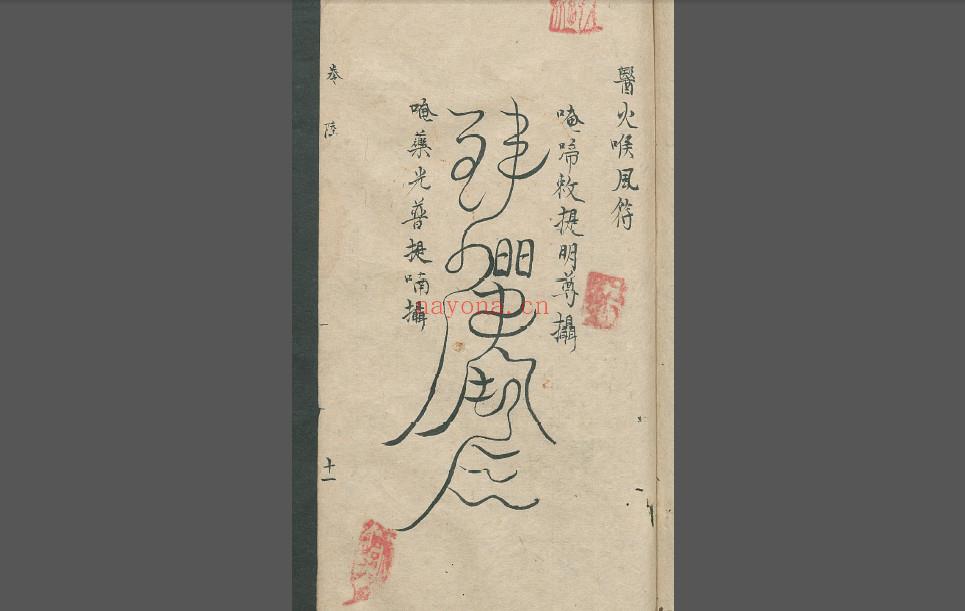 醫火喉風符
唵啼敕提明尊攝
唵藥光普提喃攝
卷 陸
十一
nayona.cn